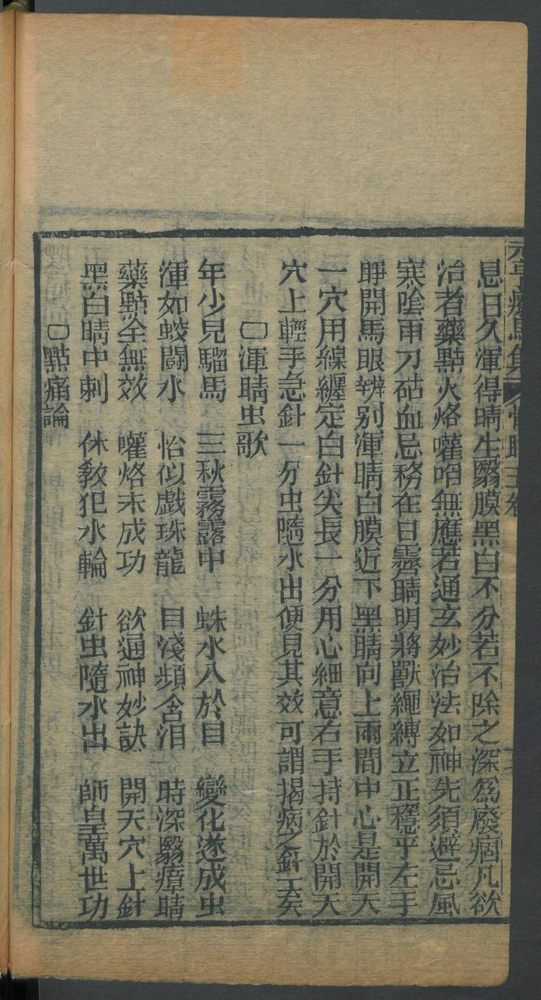 元亨療馬集
息日久渾得睛生翳膜黑白不分若不除之深爲廢痼凡欲
治者藥點火烙嚾啗無應若通玄妙治法如神先須避忌風
寒陰雨刀砧血忌務在日霽晴明將獸繩縛立正穩乎左手
睜開馬眼辨别渾睛白膜近下黑睛向上兩間中心是開天
一穴用線纏定白針尖長一分用心細意右手持針於開天
穴上輕手急針一分虫隨水出便見其效可謂揭病之針矣
渾睛虫歌
年少兒騮馬 三秋霧露中 蛛水入於目 變化遂成虫
渾如蛟鬬水 恰似戲珠龍 目淺頻含泪 時深翳瘴睛
藥點全無效 嚾烙未成功 欲通神妙訣 開天穴上針
黑白睛中刺 休教犯水輪 針虫隨水出 師皇萬世功
點痛論